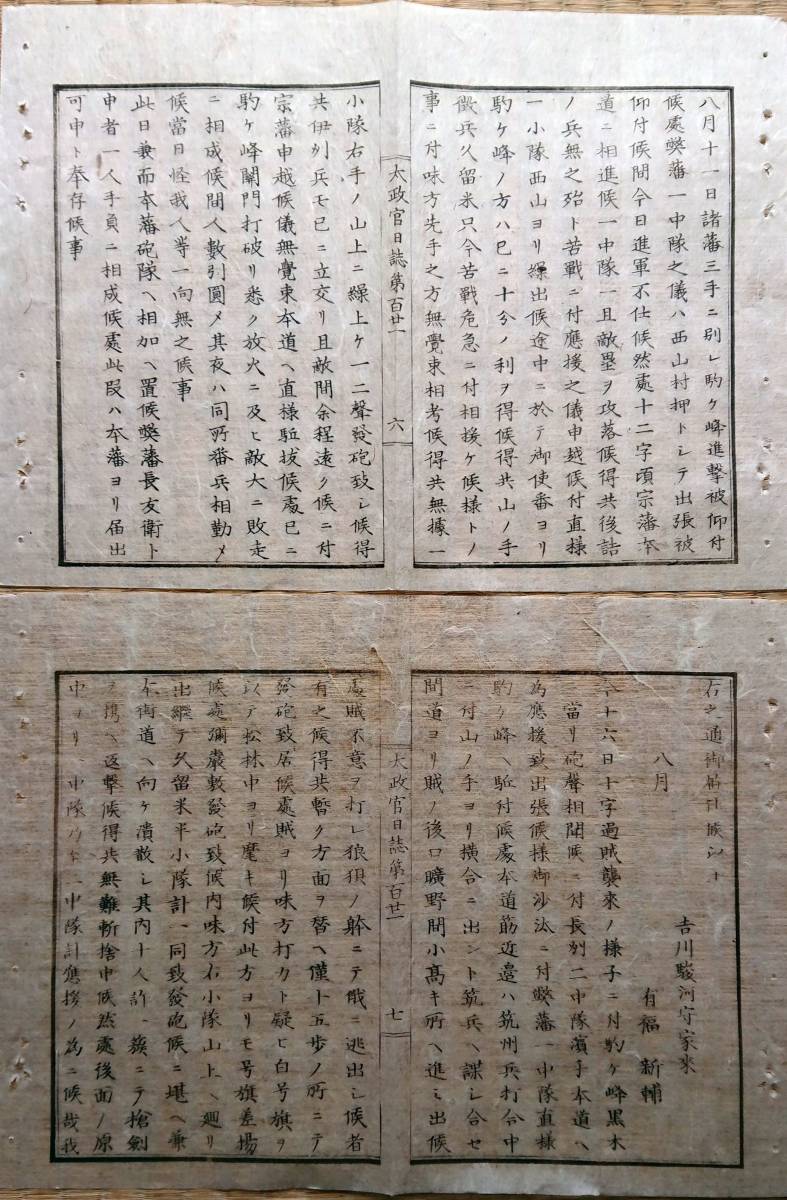 八月十一日諸藩三手ニ別レ駒ケ峰進撃被仰付
候處弊藩一中隊之儀ハ西山村押トシテ出張被
仰付候間今日進軍不仕候然處十二字頃宗藩本
道ニ相進候一中隊一且敵塁ヲ攻落候得共後詰
ノ兵無之殆ト苦戦ニ付應援之儀申越候付直様
一小隊西山ヨリ繰出候途中ニ於テ御使番ヨリ
駒ケ峰ノ方ハ已ニ十分ノ利ヲ得候得共山ノ手
徴兵久留米只今苦戦危急ニ付相援ケ候様トノ
事ニ付味方先手之方無覺束相考候得共無據一
太政官日誌第百廿一
六
小隊右手ノ山上ニ繰上ケ一二聲發砲致シ候得
共伊州兵モ已ニ立交リ且敵間余程遠ク候ニ付
宗藩申越候儀無覺束本道ヘ直様駈拔候處已ニ
駒ケ峰關門打破リ悉ク放火ニ及ヒ敵大ニ敗走
ニ相成候間人數引圓メ其夜ハ同所番兵相勤メ
候當日怪我人等一向無之候事
此日兼而本藩砲隊ヘ相加ヘ置候弊藩長友衛ト
申者一人手負ニ相成候處此段ハ本藩ヨリ届出
可申ト奉存候事
右之通御届仕候以上
八月
吉川駿河守家来
有福 新輔
今十六日十字過賊襲來ノ様子ニ付駒ケ峰黒木
ニ當リ砲聲相聞候ニ付長州二中隊濱手本道ヘ
為應援致出張候様御沙汰ニ付弊藩一中隊直様
駒ケ峰ヘ駈付候處本道筋近邊ハ筑州兵打合中
ニ付山ノ手ヨリ横合ニ出ント筑兵ヘ謀シ合セ
間道ヨリ賊ノ後口曠野間小高キ所ヘ進ミ出候
太政官日誌第百廿一
七
處賊不意ヲ打レ狼狽ノ躰ニテ俄ニ逃出シ候者
有之候得共暫ク方面ヲ替ヘ僅ト五歩ノ所ニテ
發砲致居候處賊ヨリ味方打カト疑ヒ白号旗ヲ
以テ松林中ヨリ麾キ候付此方ヨリモ号旗差揚
候處彌嚴敷發砲致候内味方右小隊山上ヘ廻リ
出繼テ久留米半小隊計一同致發砲候ニ堪ヘ兼
本街道ヘ向ケ潰散シ其内十人許一簇ニテ槍剣
ヲ携ヘ返撃候得共無難斬捨申候然處後面ノ原
中ヨリ一中隊乃至二中隊計應援ノ為ニ候哉我